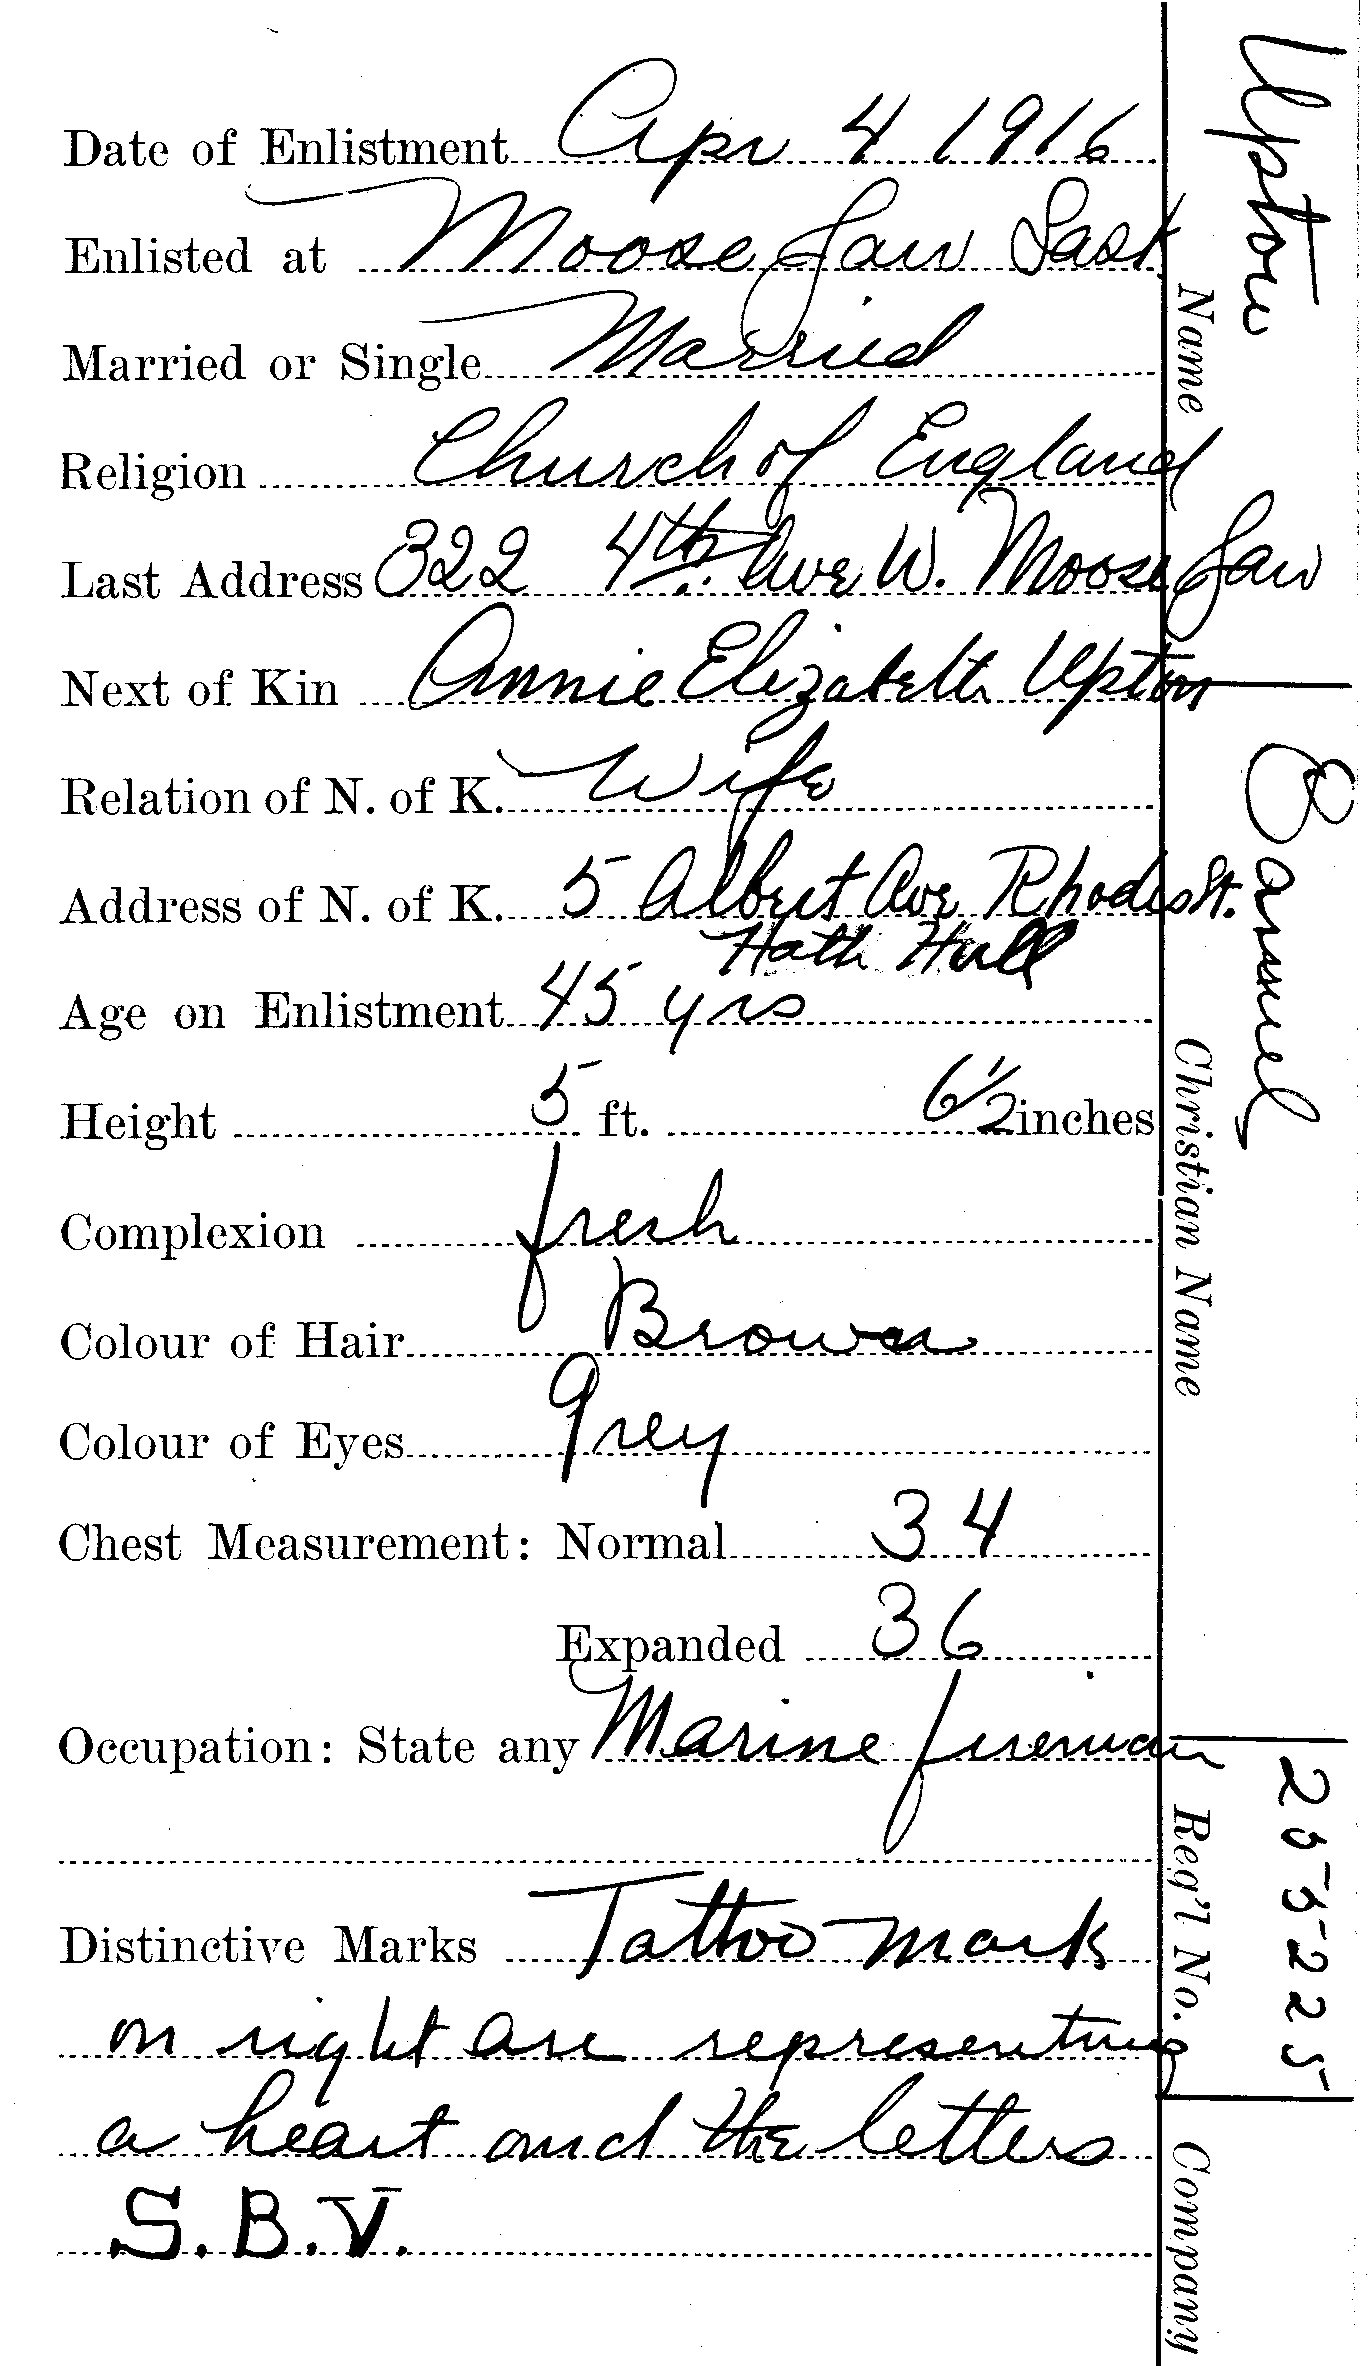 Date of Enlistment Apr 4 1916
Enlisted at Moose Jaw Sask
Married or Single Married
Religion Church of England
Last Address 322 4th. Ave W. Moose Jaw
Next of Kin Annie Elizabeth Upton
Relation of N. of K. Wife
Address of N. of K. 5 Albert Ave Rhodes St.
Hath Hull
Age on Enlistment 45 yrs
Height 5 ft. 6 1/2 inches
Complexion fresh
Colour of Hair Brown
Colour of Eyes Grey
Chest Measurement: Normal 34
Expanded 36
Occupation: State any Marine fireman
Distinctive Marks Tattoo mark
on right are representing
a heart and the letters
S.B.V.
Upton
Name
Samuel
Christian Name
255225
Reg'l No.
Company